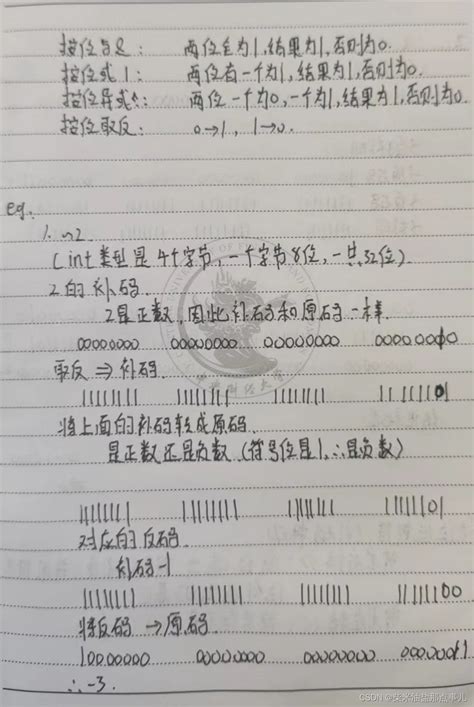 按位与&： 两位全为1,结果为1,否则为0.
按位或|： 两位有一个为1,结果为1,否则为0.
按位异或^： 两位一个为0,一个为1,结果为1,否则为0.
按位取反： 0→1, 1→0.
eg:
1. ~2
(int类型是4个字节,一个字节8位,一共32位)
2的补码
2是正数,因此补码和原码一样
00000000 00000000 00000000 00000010
取反 ⇒ 补码
11111111 11111111 11111111 11111101
将上面的补码转成原码
是正数还是负数(符号位是1,∴是负数)
11111111 11111111 11111111 11111101
对应的反码
补码-1
11111111 11111111 11111111 11111100
将反码 → 原码
10000000 00000000 00000000 00000011
∴-3.
CSDN @柴米油盐那点事儿